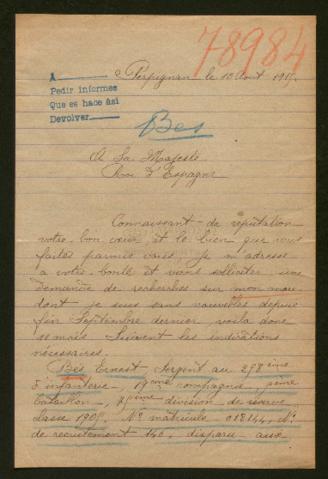 78984
A
Perpignan le 10 Aout 1915.
Pedir informes
Que se hace ási
Devolver
Bes
A Sa Majesté
Roi d'Espagne
Connaissant de réputation
votre bon cœur et le bien que vous
faites parmie vous. Je m'adresse
a votre bonté et viens solliciter une
demande de recherches sur mon mari
dont je suis sans nouvelles depuis
fin Septembre dernier, voila donc
11 mois. Suivent les indications
nécessaires.
Bes Ernest Sergent au 258ème
d'infanterie, 19ème Compagnie, 5ème
Bataillon, division de réserve
classe 1905. No matricule 018144, No
de recrutement 140, disparu aux